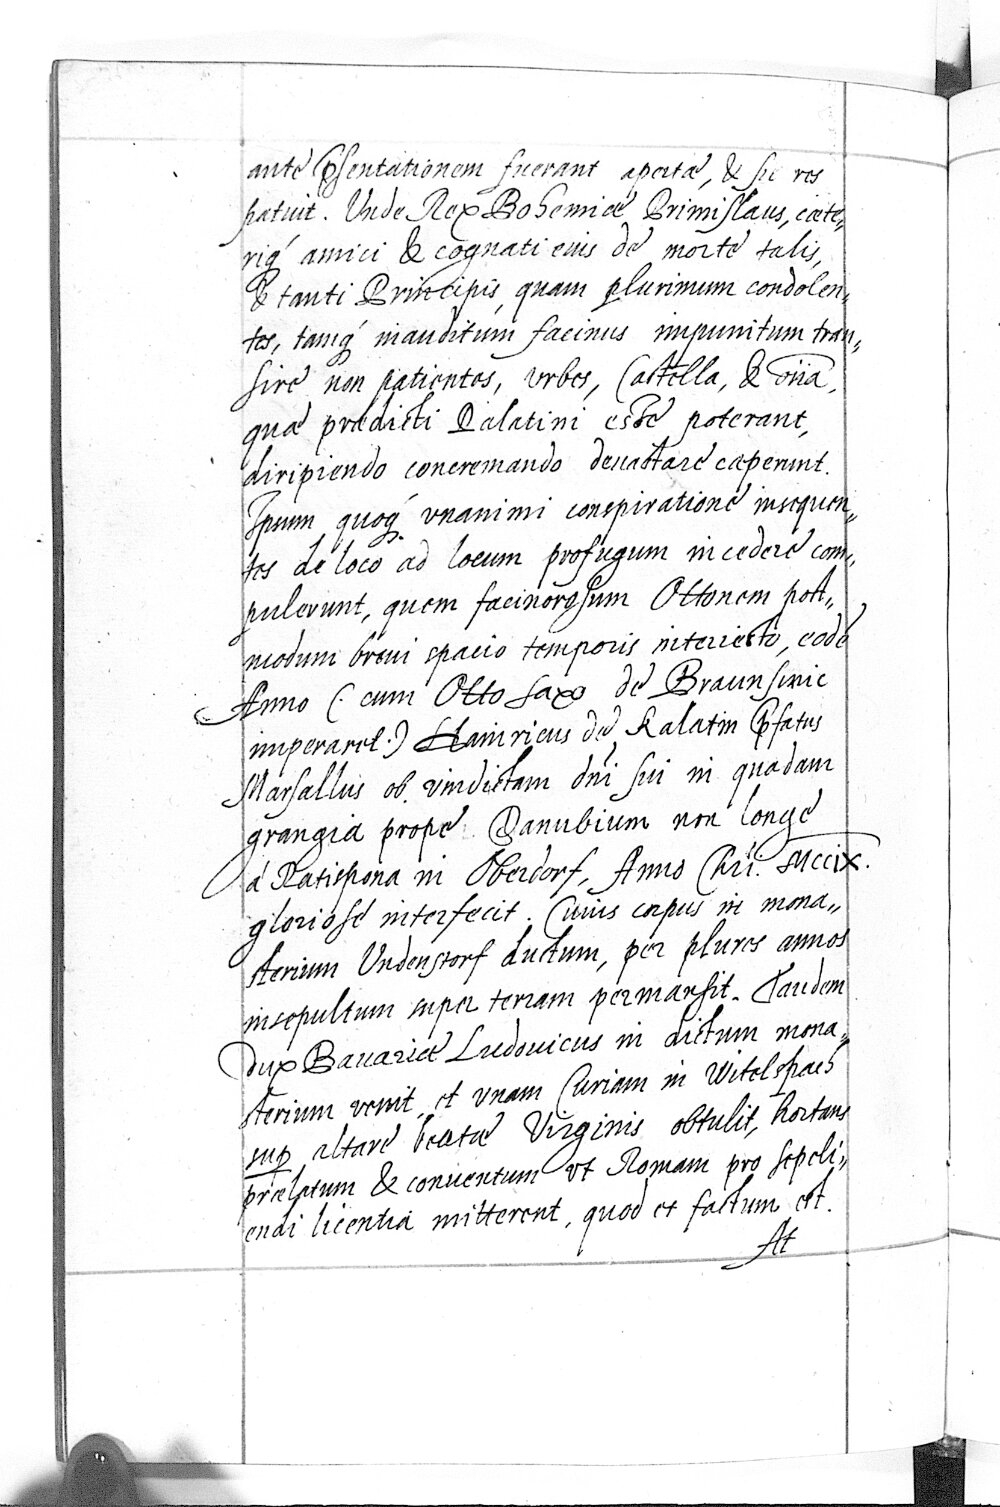 ante p̄sentationem fuerant apertæ, & sic res
patuit. Vnde Rex Bohemiæ Primislaus, cæte„
riq́ amici & cognati eius de morte talis,
& tanti Principis, quam plurimum condolen„
tes, tamq́ inauditum facinus impunitum tran„
sire non patientes, vrbes, Castella, & o͞nia,
quæ prædicti Palatini esse poterant,
diripiendo concremando deuastare cæperunt.
Ipsum quoq́ vnanimi conspiratione insequen„
tes de loco ad locum profugum incedere com„
pulerunt, quem facinorosum Ottonem post„
modum breui spacio temporis interiecto, eodē
Anno (: cum Otto Saxo de Braunswic
imperaret :) Hainricus de Kalatin p̄fatus
Marsallus ob vindictam dn̄i sui in quadam
grangia prope Danubium non longe
á Ratispona in Oberdorf, Anno Chri̅. MCCIX.
gloriose interfecit. Cuius corpus in mona„
sterium Vndenstorf ductum, per plures annos
insepultum super terram permansit. Tandem
dux Bauariæ Ludouicus in dictum mona„
sterium venit et vnam Curiam in Witelspach
sup altare beatæ Virginis obtulit, hortans
prælatum & conuentum vt Romam pro sepeli„
endi licentia mitterent, quod et factum est.
At